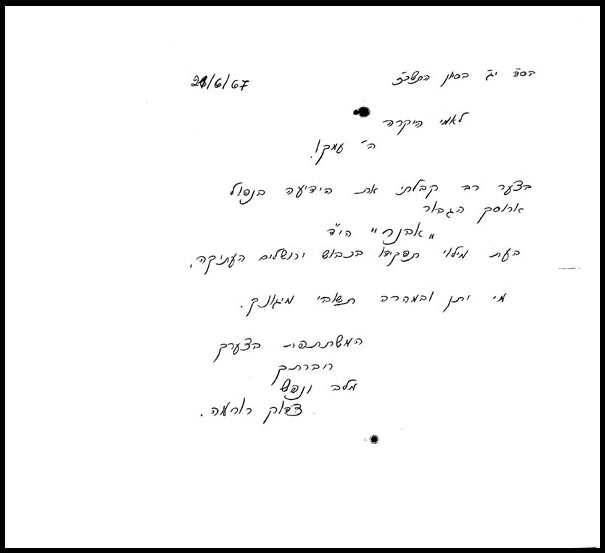 בס"ד יג' בסון התשכ"ז 21/6/67
לאמי היקרה
ה' עמך!
בצער רב קבלתי את הידיעה בנפול
ארוסך הגבור
"אבנר" הי"ד
בעת מילוי תפקידו בכבוש ירושלים העתיקה.
מי יתן ובמהרה תשובי מיגונך.
המשתתפת בצערך
חברתך
מלב ונפש
צדוק רומה.